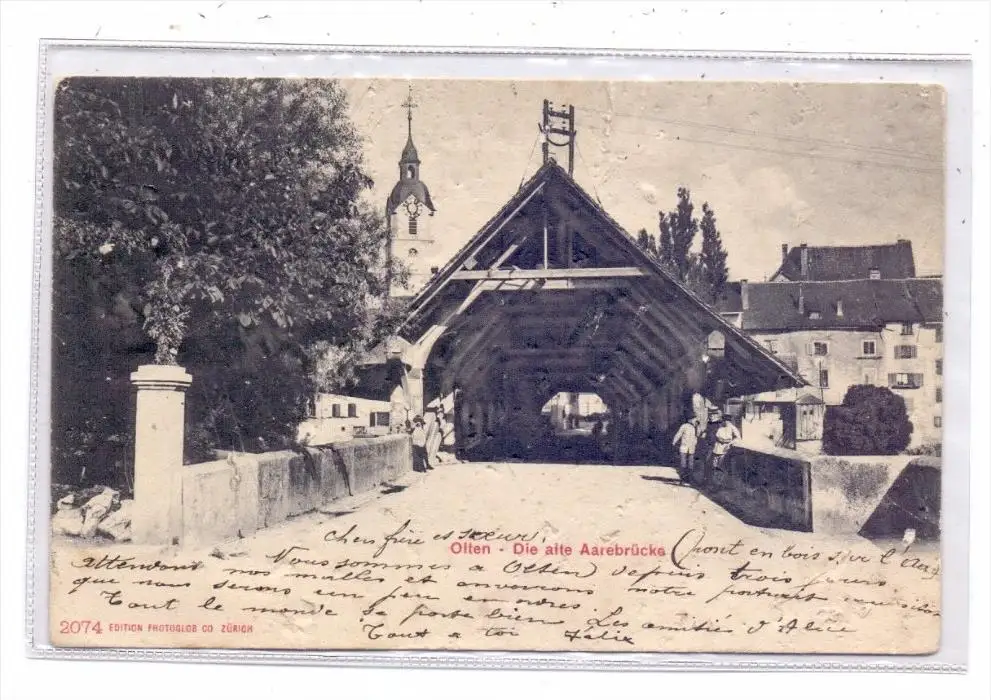 Chers frère et sœur,
Olten - Die alte Aarebrücke
(Pont en bois sur l'Aar)
Nous sommes à Olten depuis trois jours
attendons nos malles et envoyons notre portrait aussitôt
que nous serons un peu en ordres.
Tout le monde se porte bien. Les amitiés d'Alice
Tout à toi Félix
2074 EDITION PHOTOGLOB CO ZÜRICH